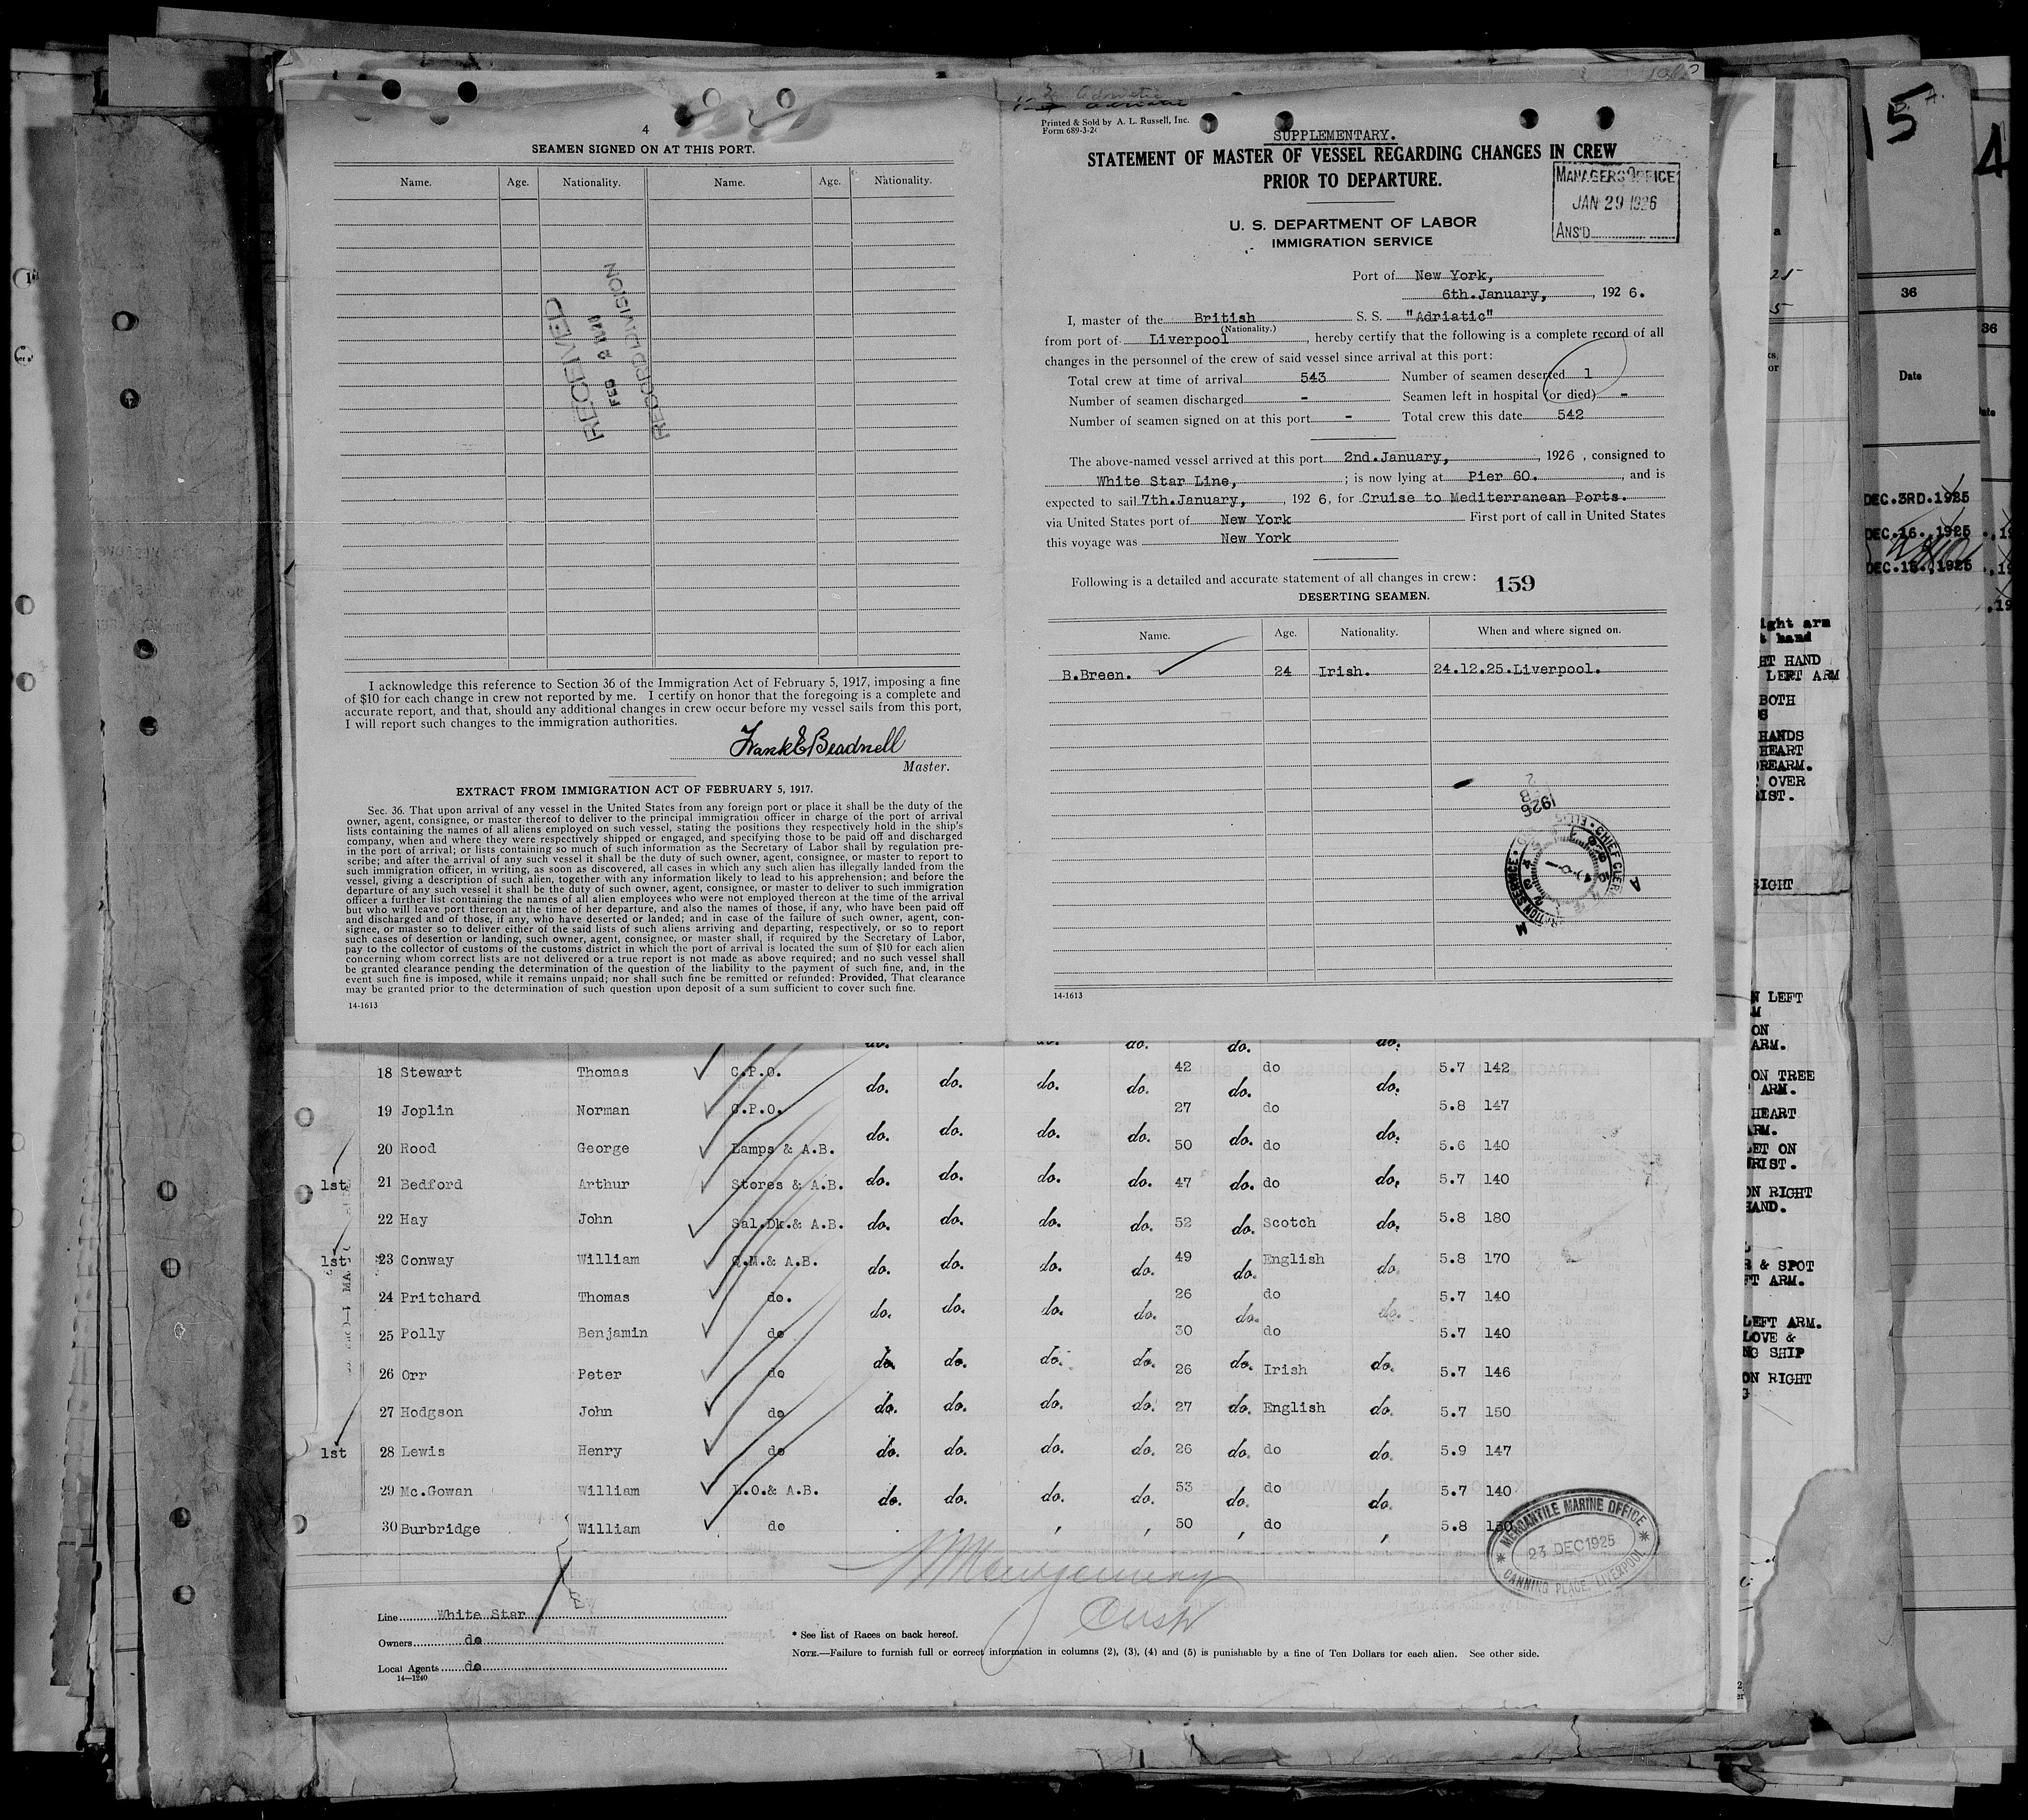 4
SEAMEN SIGNED ON AT THIS PORT.
Name. Age. Nationality. Name. Age. Nationality.
RECEIVED
FEB
RECORD DIVISION
I acknowledge this reference to Section 36 of the Immigration Act of February 5, 1917, imposing a fine
of $10 for each change in crew not reported by me. I certify on honor that the foregoing is a complete and
accurate report, and that, should any additional changes in crew occur before my vessel sails from this port,
I will report such changes to the immigration authorities.
Frank E Beadnell
Master.
EXTRACT FROM IMMIGRATION ACT OF FEBRUARY 5, 1917.
Sec. 36. That upon arrival of any vessel in the United States from any foreign port or place it shall be the duty of the
owner, agent, consignee, or master thereof to deliver to the principal immigration officer in charge of the port of arrival
lists containing the names of all aliens employed on such vessel, stating the positions they respectively hold in the ship's
company, when and where they were respectively shipped or engaged, and specifying those to be paid off and discharged
in the port of arrival; or lists containing so much of such information as the Secretary of Labor shall by regulation pre-
scribe; and after the arrival of any such vessel it shall be the duty of such owner, agent, consignee, or master to report to
such immigration officer, in writing, as soon as discovered, all cases in which any such alien has illegally landed from the
vessel, giving a description of such alien, together with any information likely to lead to his apprehension; and before the
departure of any such vessel it shall be the duty of such owner, agent, consignee, or master to deliver to such immigration
officer a further list containing the names of all alien employees who were not employed thereon at the time of the arrival
but who will leave port thereon at the time of her departure, and also the names of those, if any, who have been paid off
and discharged and of those, if any, who have deserted or landed; and in case of the failure of such owner, agent, con-
signee, or master so to deliver either of the said lists of such aliens arriving and departing, respectively, or so to report
such cases of desertion or landing, such owner, agent, consignee, or master shall, if required by the Secretary of Labor,
pay to the collector of customs of the customs district in which the port of arrival is located the sum of $10 for each alien
concerning whom correct lists are not delivered or a true report is not made as above required; and no such vessel shall
be granted clearance pending the determination of the question of the liability to the payment of such fine, and, in the
event such fine is imposed, while it remains unpaid; nor shall such fine be remitted or refunded: Provided, That clearance
may be granted prior to the determination of such question upon deposit of a sum sufficient to cover such fine.
14-1613
Adriatic
Printed & Sold by A. L. Russell, Inc.
Form 689-3-2
SUPPLEMENTARY.
STATEMENT OF MASTER OF VESSEL REGARDING CHANGES IN CREW
PRIOR TO DEPARTURE.
MANAGERS OFFICE
JAN 29 1926
ANS'D
U. S. DEPARTMENT OF LABOR
IMMIGRATION SERVICE
Port of New York,
6th.January, , 192 6.
I, master of the British S. S. "Adriatic"
(Nationality.)
from port of Liverpool , hereby certify that the following is a complete record of all
changes in the personnel of the crew of said vessel since arrival at this port:
Total crew at time of arrival 543 Number of seamen deserted 1
Number of seamen discharged - Seamen left in hospital (or died) -
Number of seamen signed on at this port - Total crew this date 542
The above-named vessel arrived at this port 2nd.January, , 1926 , consigned to
White Star Line, ; is now lying at Pier 60. , and is
expected to sail 7th.January, , 192 6, for Cruise to Mediterranean Ports.
via United States port of New York First port of call in United States
this voyage was New York
Following is a detailed and accurate statement of all changes in crew: 159
DESERTING SEAMEN.
Name. Age. Nationality. When and where signed on.
B.Breen. 24 Irish. 24.12.25.Liverpool.
1926
CHIEF CLERK
14-1613
do. do. do. do.
18 Stewart Thomas C.P.O. do. do. do. do. 42 do. do do. 5.7 142
19 Joplin Norman C.P.O. do. do. do. do. 27 do. do do. 5.8 147
20 Rood George Lamps & A.B. do. do. do. do. 50 do. do do. 5.6 140
1st 21 Bedford Arthur Stores & A.B. do. do. do. do. 47 do. do do. 5.7 140
22 Hay John Sal.Dk.& A.B. do. do. do. do. 52 do. Scotch do. 5.8 180
1st 23 Conway William Q.M.& A.B. do. do. do. do. 49 do. English do. 5.8 170
24 Pritchard Thomas do. do. do. do. do. 26 do. do do. 5.7 140
25 Polly Benjamin do 30 do 5.7 140
26 Orr Peter do do. do. do. do. 26 do. Irish do. 5.7 146
27 Hodgson John do do. do. do. do. 27 do. English do. 5.7 150
1st 28 Lewis Henry do do. do. do. do. 26 do. do do. 5.9 147
29 Mc.Gowan William L.O.& A.B. do. do. do. do. 53 do. do do. 5.7 140
30 Burbridge William do 50 do 5.8 150
MERCANTILE MARINE OFFICE
23 DEC 1925
CANNING PLACE, LIVERPOOL
Line White Star
Owners do
Local Agents do
14—1240
* See list of Races on back hereof.
NOTE.—Failure to furnish full or correct information in columns (2), (3), (4) and (5) is punishable by a fine of Ten Dollars for each alien. See other side.
15
4
36
36
Date
DEC.3RD.1925
DEC.16.,1925
DEC.15.,1925
ight arm
hand
HT HAND
LEFT ARM
BOTH
HANDS
HEART
REARM.
OVER
IST.
RIGHT
N LEFT
M
ON
ARM.
ON TREE
ARM.
HEART
ARM.
LET ON
WRIST.
ON RIGHT
HAND.
R & SPOT
FT ARM.
LEFT ARM.
LOVE &
NG SHIP
ON RIGHT